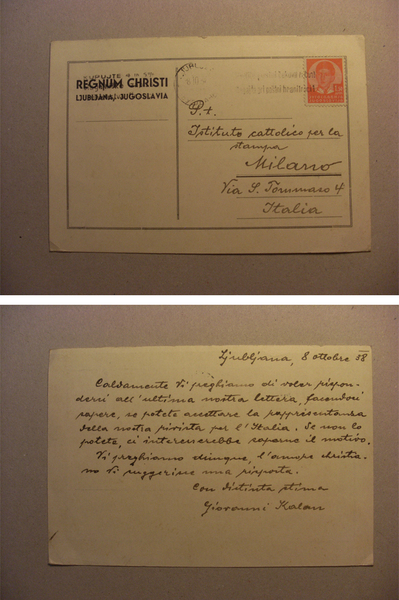 KUPUJTE
REGNUM CHRISTI
LJUBLJANA, JUGOSLAVIA
P. t.
Istituto cattolico per la
stampa
Milano
Via S. Tommaso 4
Italia
Ljubljana, 8 ottobre 38
Caldamente Vi preghiamo di voler rispon-
derci all'ultima nostra lettera, facendoci
sapere, se potete accettare la rappresentanza
della nostra rivista per l'Italia. Se non lo
potete, ci interesserebbe saperne il motivo.
Vi preghiamo dunque, l'amore christia-
no Vi suggerisce una risposta.
Con distinta stima
Giovanni Kalan